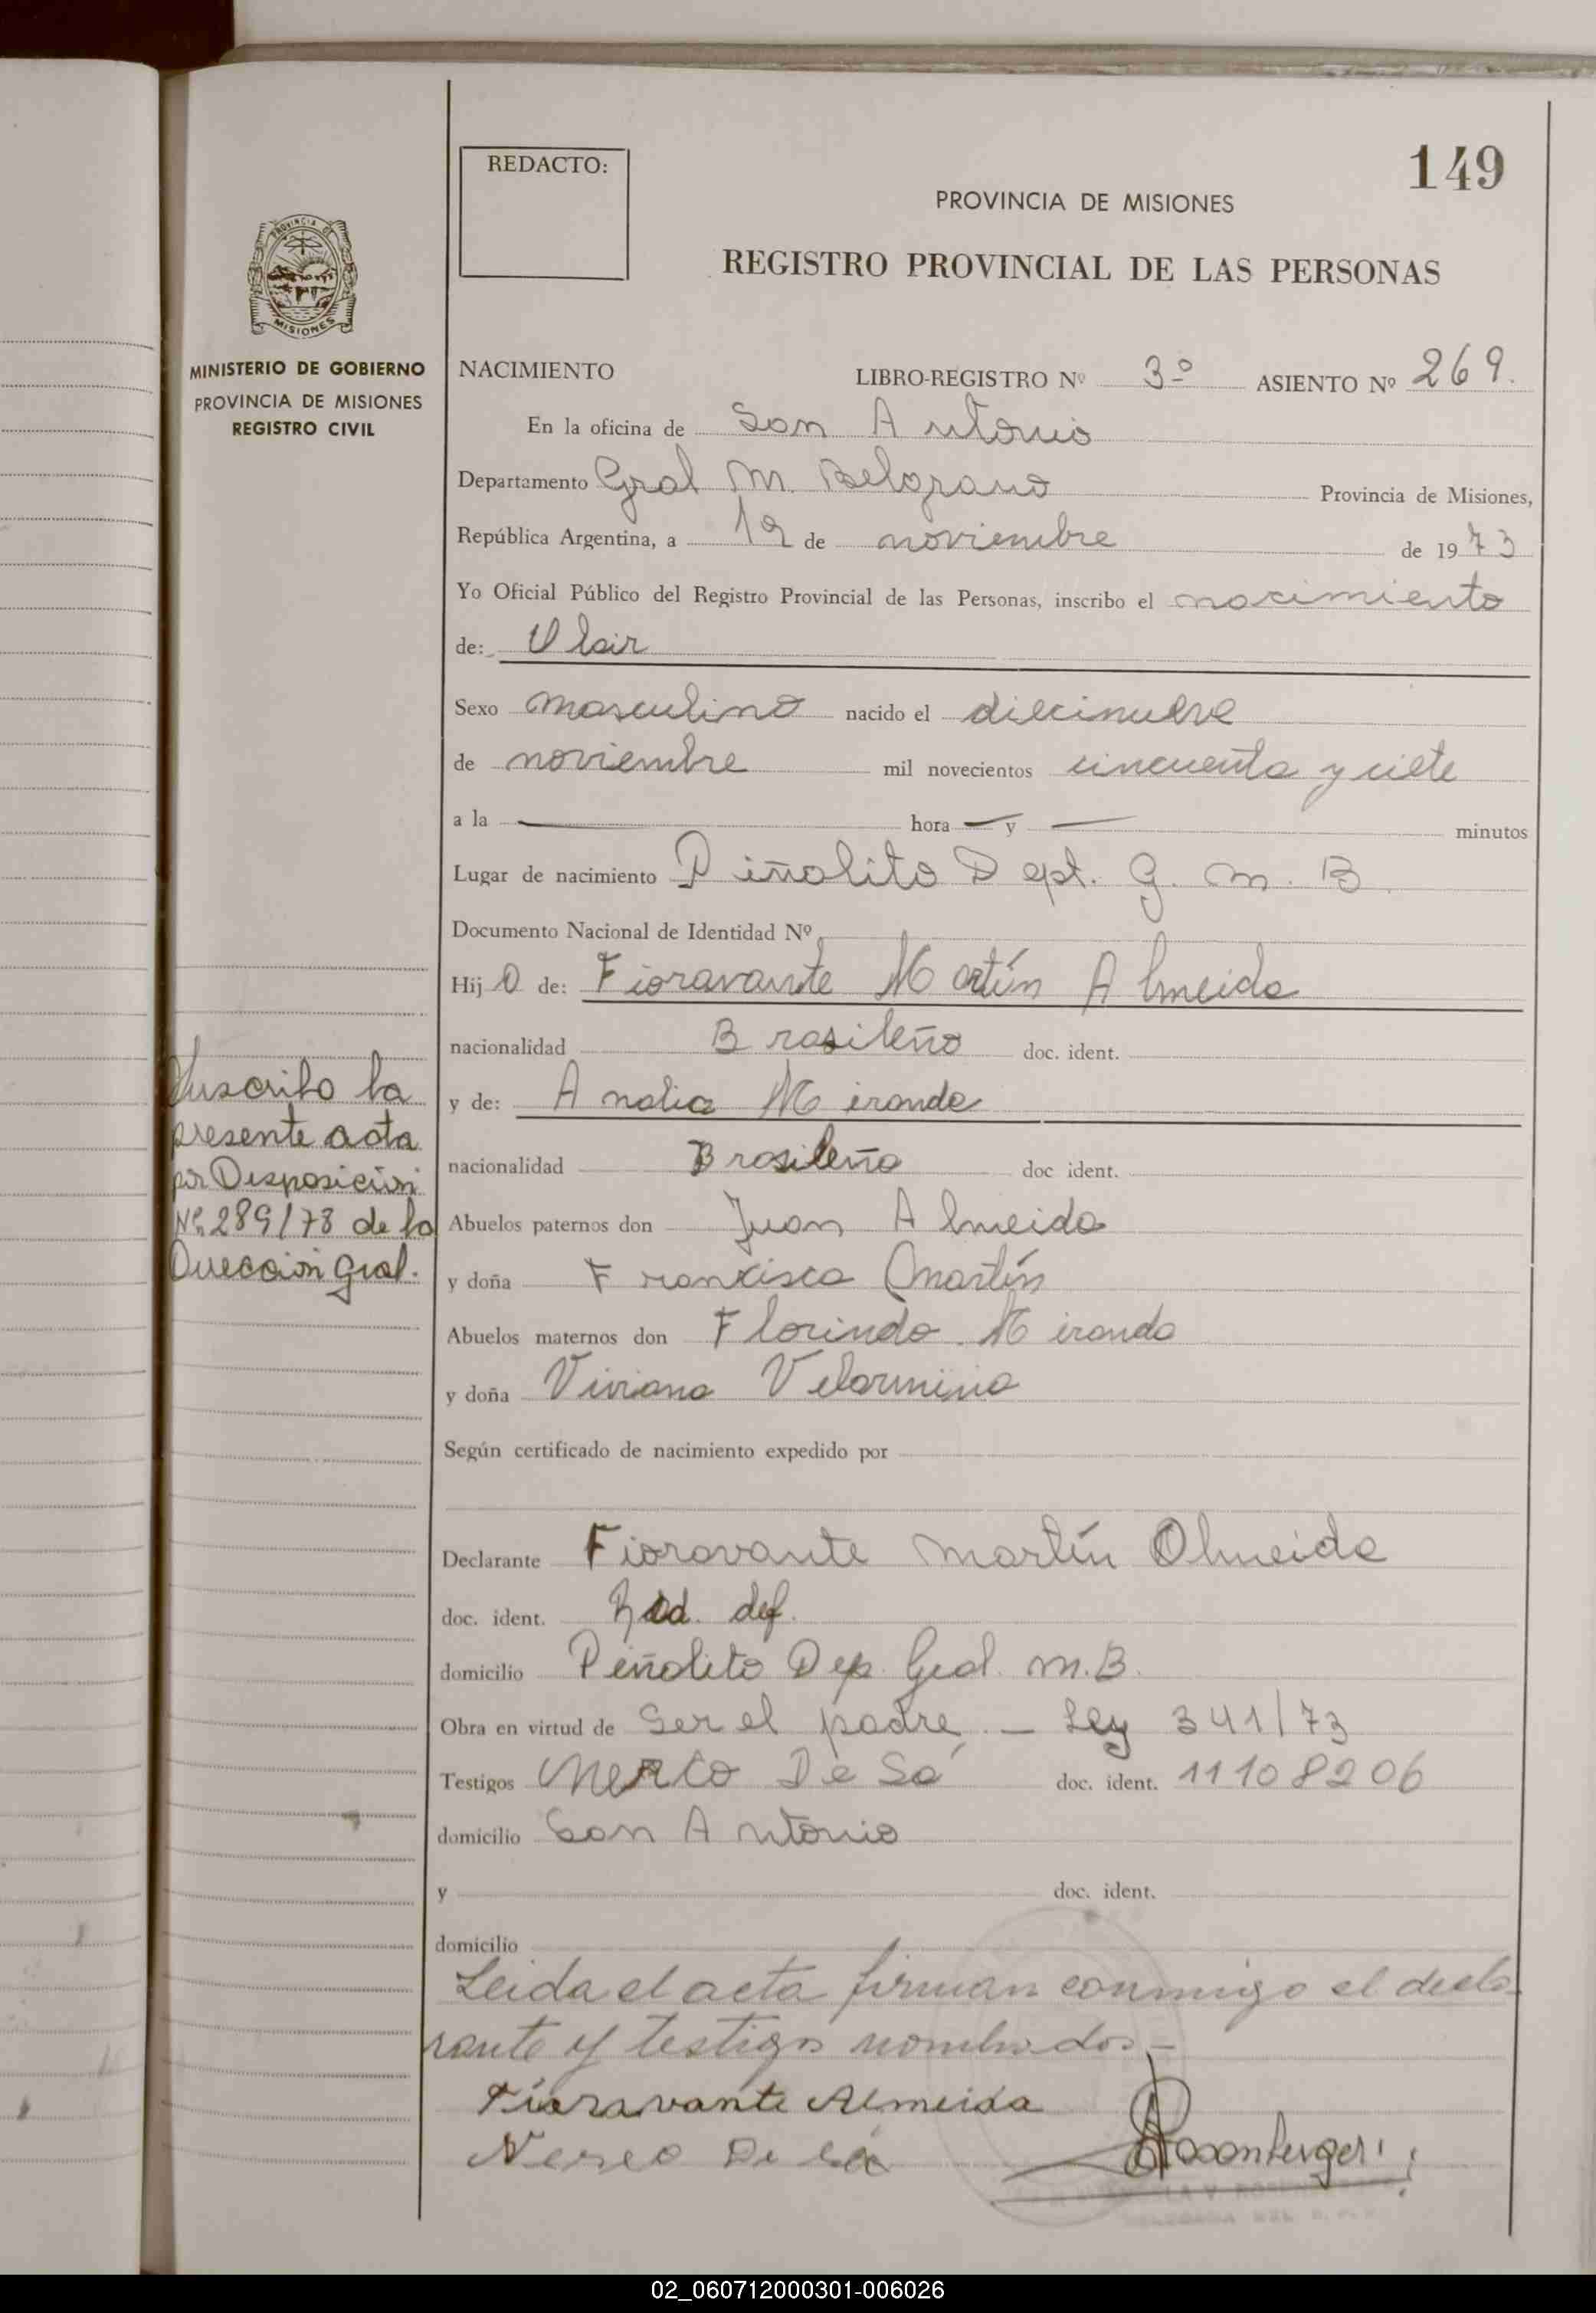 149
REDACTO:
PROVINCIA DE MISIONES
REGISTRO PROVINCIAL DE LAS PERSONAS
PROVINCIA DE
MISIONES
MINISTERIO DE GOBIERNO
PROVINCIA DE MISIONES
REGISTRO CIVIL
NACIMIENTO LIBRO-REGISTRO Nº 3º ASIENTO Nº 269.
En la oficina de San Antonio
Departamento Gral M. Belgrano Provincia de Misiones,
República Argentina, a 19 de noviembre de 1973
Yo Oficial Público del Registro Provincial de las Personas, inscribo el nacimiento
de: Vlair
Sexo masculino nacido el diecinueve
de noviembre mil novecientos cincuenta y ciete
a la — hora — y — minutos
Lugar de nacimiento Piñalito Dept. G. M. B.
Documento Nacional de Identidad Nº
Hijo de: Fioravante Martín Almeida
nacionalidad Brasileño doc. ident.
y de: Analia Miranda
nacionalidad Brasileña doc ident.
Abuelos paternos don Juan Almeida
y doña Francisca Martín
Abuelos maternos don Florindo Miranda
y doña Viviana Velarmina
Según certificado de nacimiento expedido por
Inscribo la
presente acta
por Disposición
Nº 289/78 de la
Dirección Gral.
Declarante Fioravante Martín Olmeida
doc. ident. Rad. def.
domicilio Piñalito Dep. Gral. M.B.
Obra en virtud de Ser el padre. — Ley 341/73
Testigos Nereo De Sá doc. ident. 11108206
domicilio San Antonio
y doc. ident.
domicilio
Leida el acta firman conmigo el decla-
rante y testigos nombrados.—
Fioravante Almeida
Nereo De Sá
Rosemberger
02_060712000301-006026